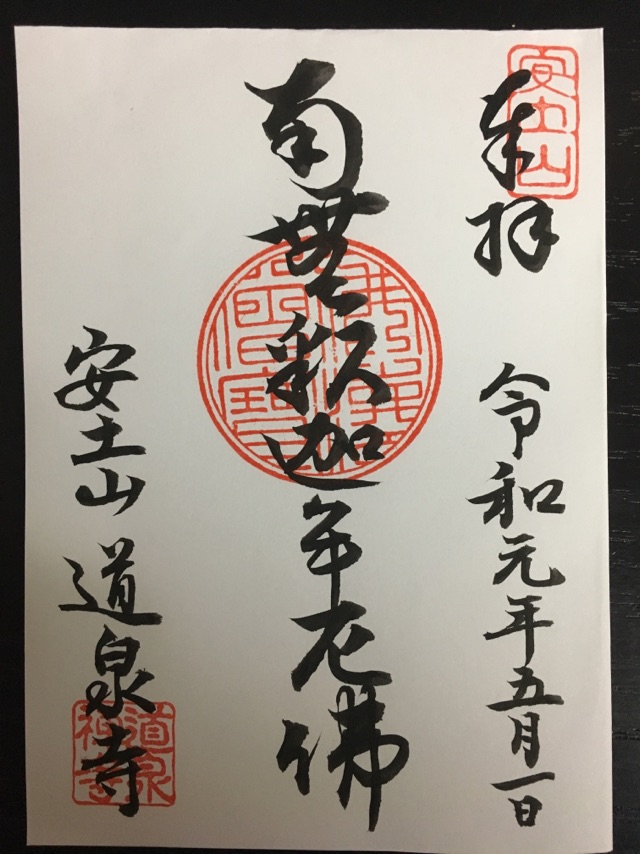 奉拝
令和元年五月一日
南無釈迦牟尼佛
安土山 道泉寺
安土山
道泉禅寺